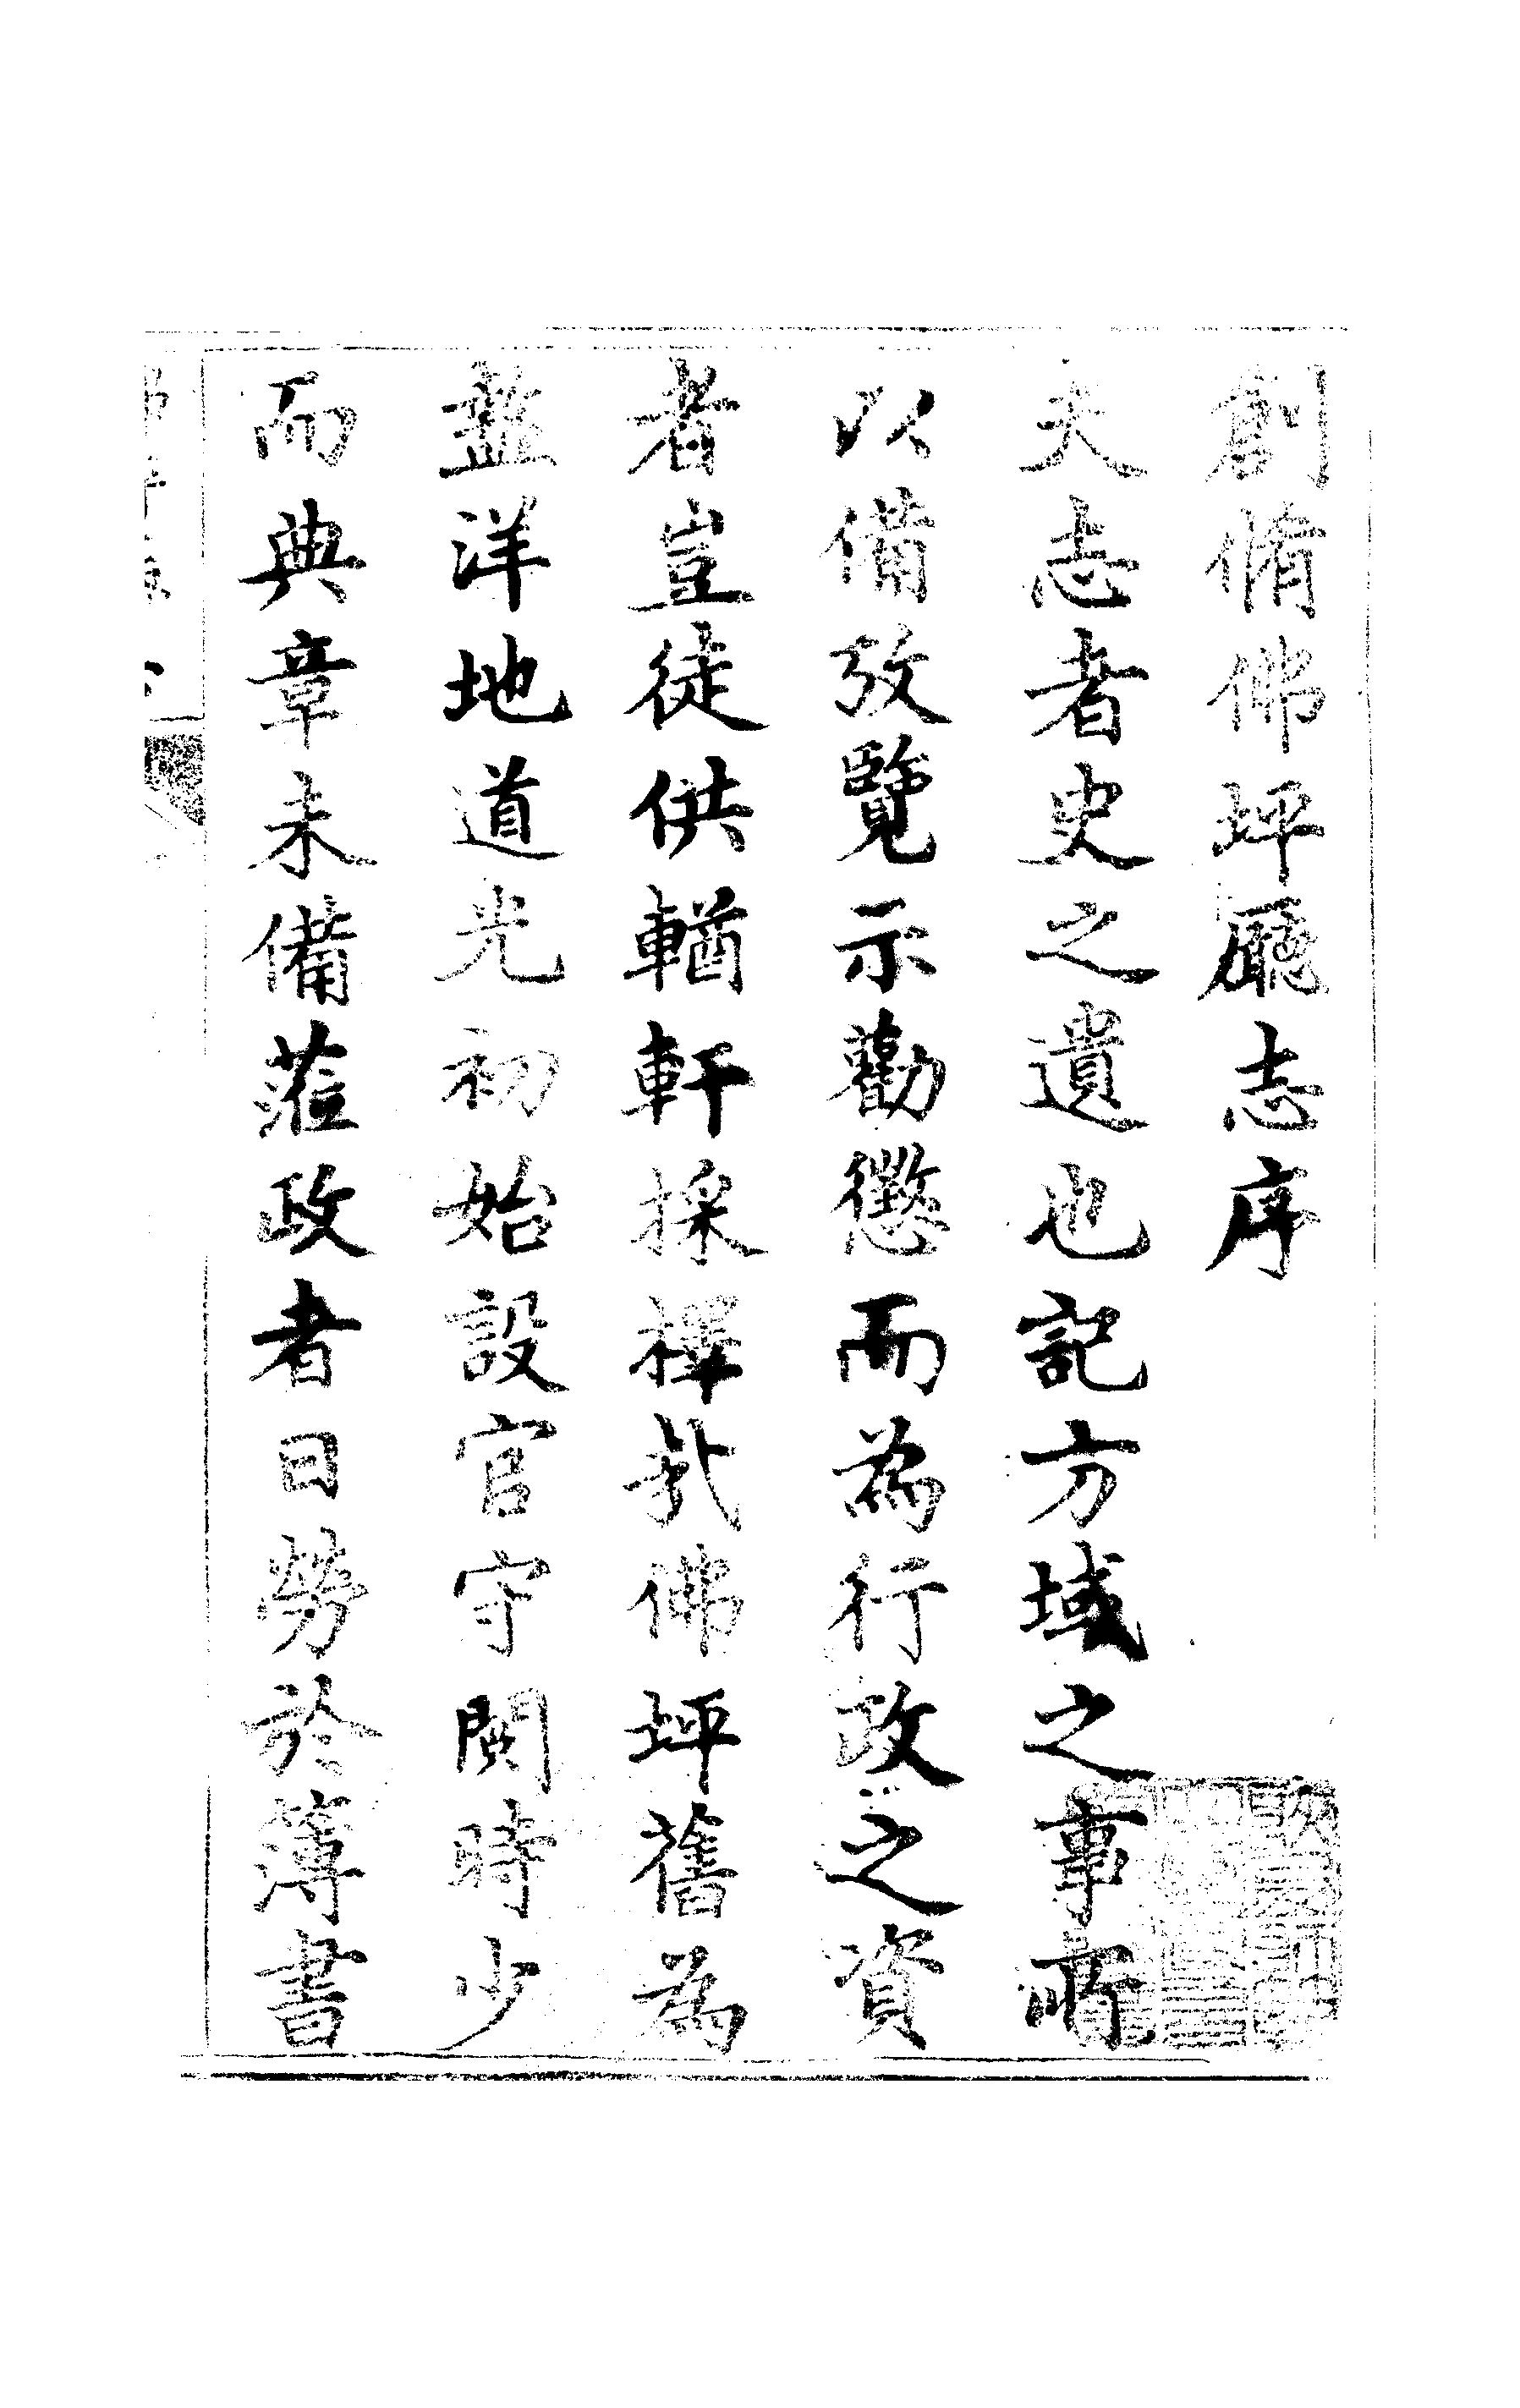 創脩佛坪廳志序
夫志者史之遺也記方域之事所
以備攷覽示勸懲而為行政之資
者豈徒供輶軒採擇㢤佛坪舊為
盩洋地道光初始設官守閱時少
而典章未備蒞政者日勞於簿書